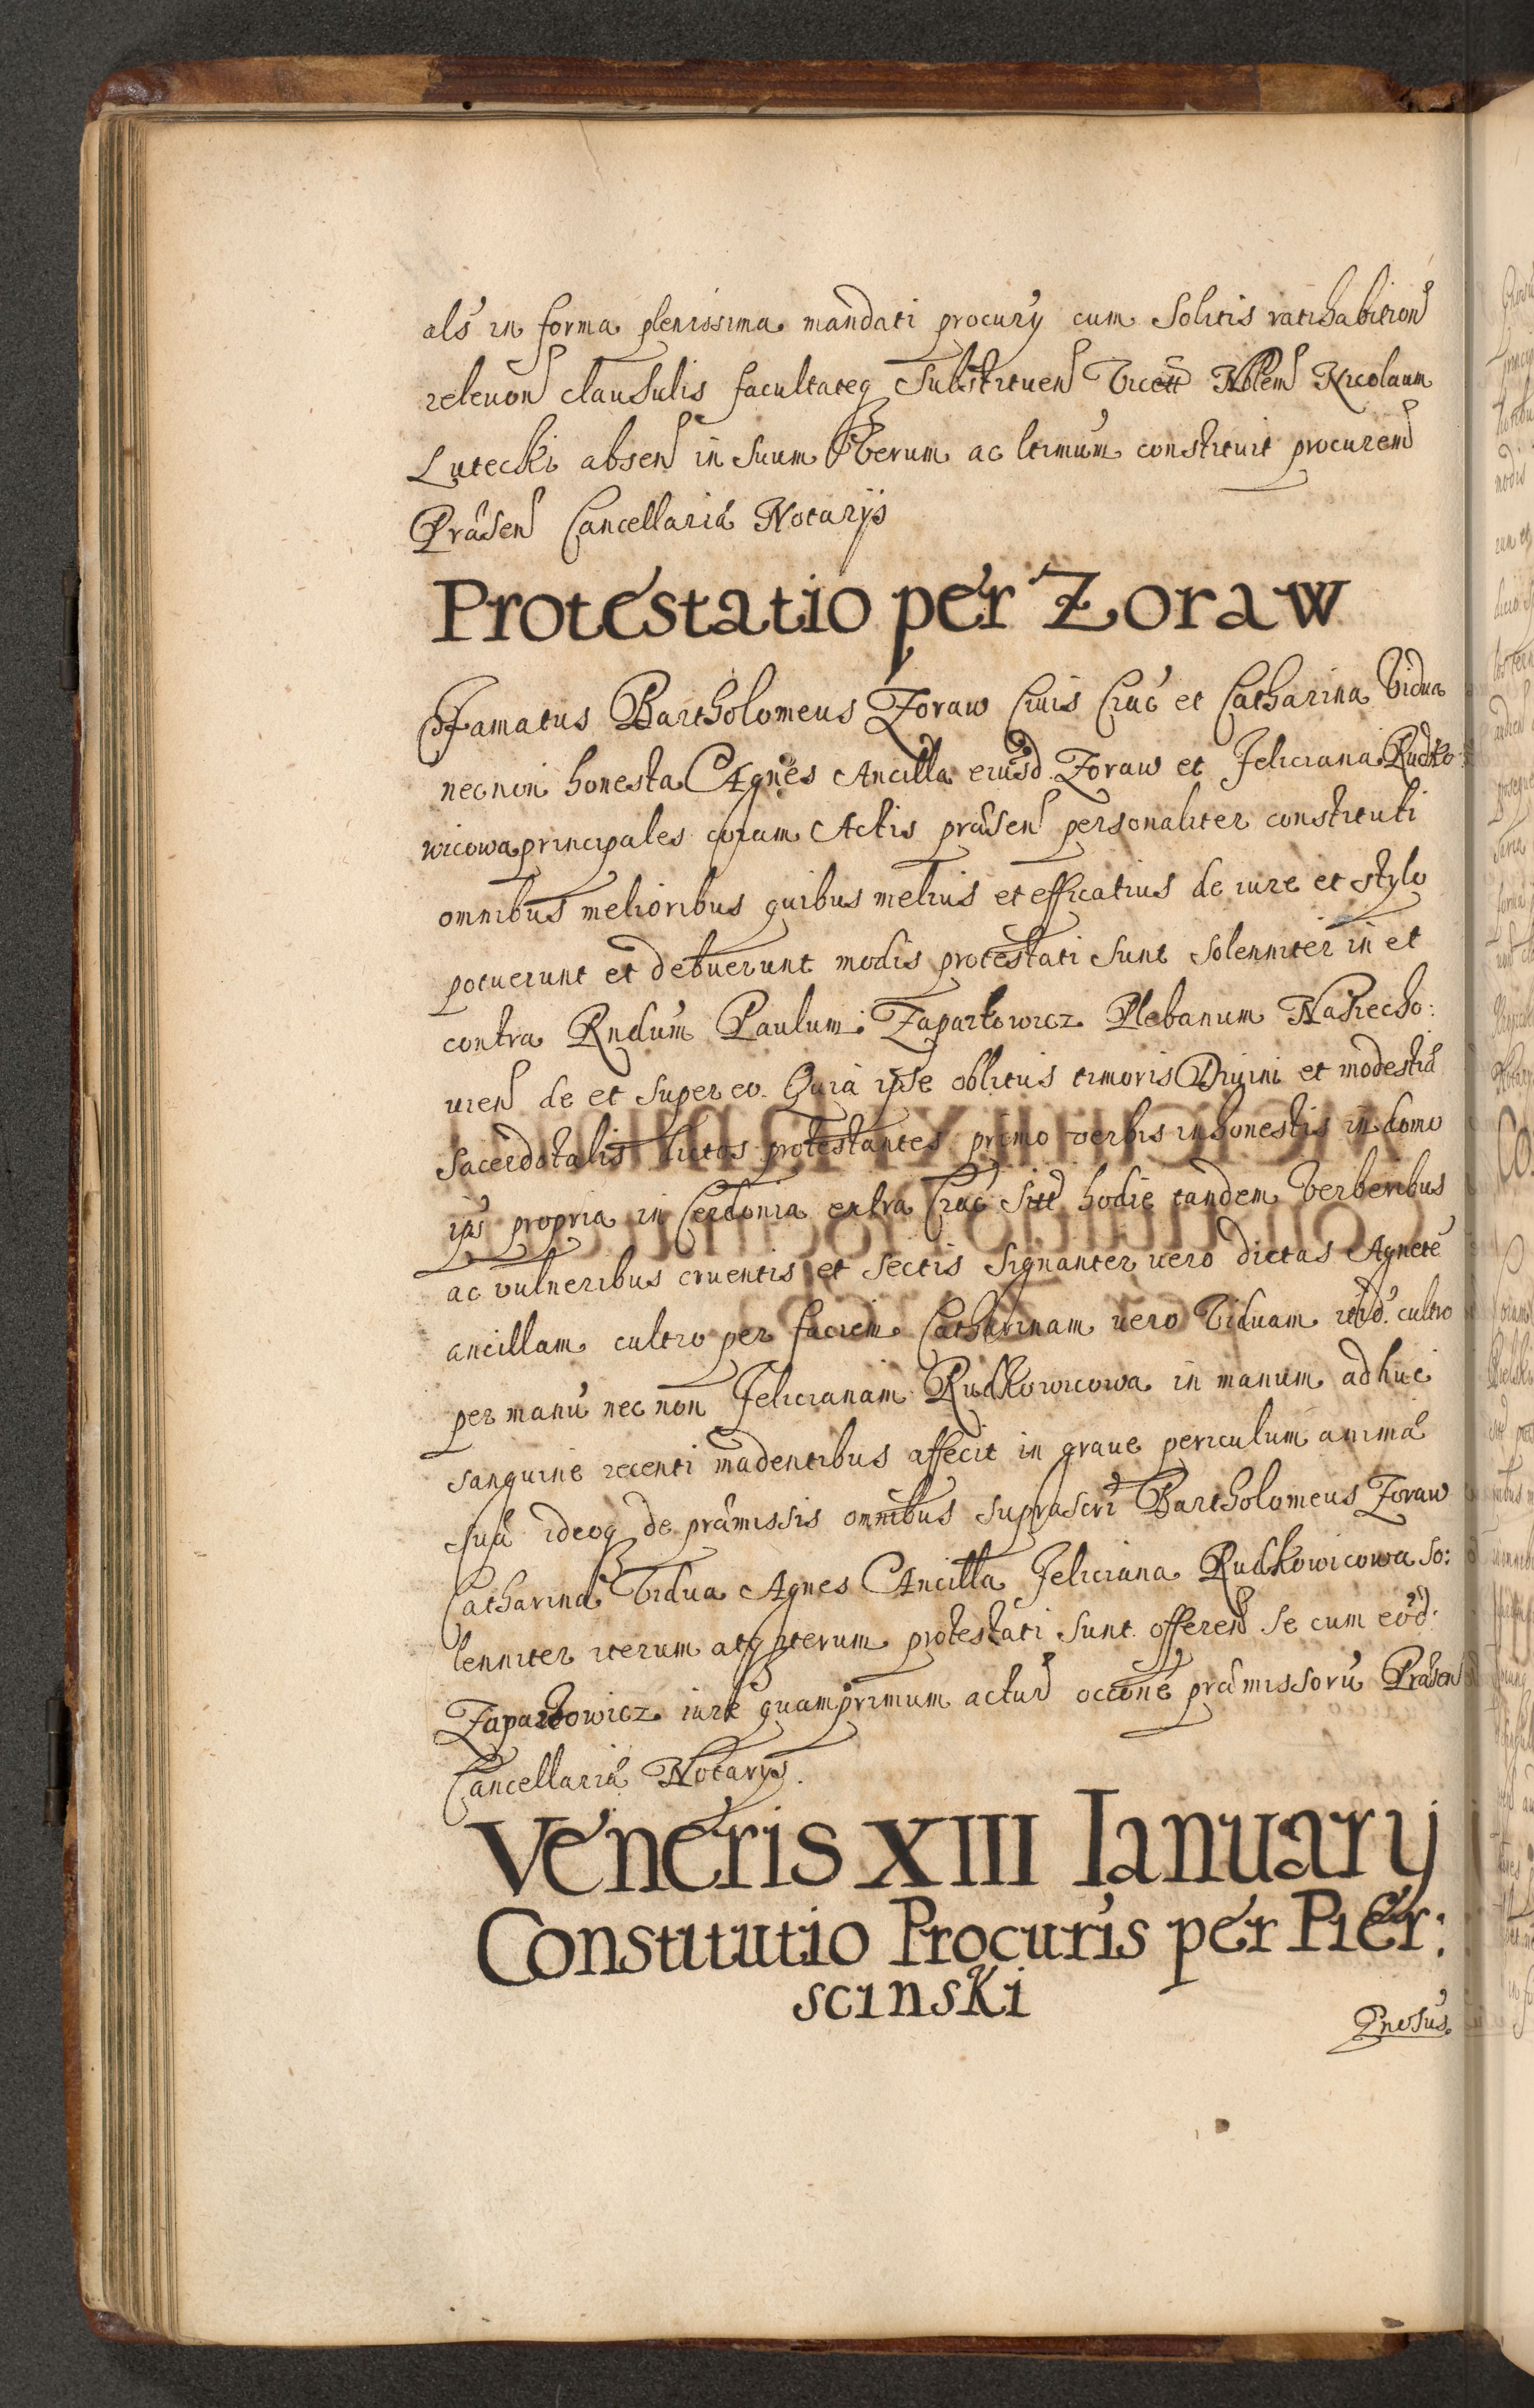 als in forma plenissima mandati procurij cum solitis ratihabition
releuon clausulis facultateq substituen Nblem Nicolaum
Lutecki absen in suum verum ac ltimum constituit procurem
Præsen Cancellariæ Notarijs
Protestatio per Zoraw
Famatus Bartholomeus Zoraw Ciuis Crac et Catharina Vidua
necnon honesta Agnes Ancilla eiusd. Zoraw et Feliciana Rudko:
wicowa principales coram Actis præsen personaliter constituti
omnibus melioribus quibus melius et efficatius de iure et stylo
potuerunt et debuerunt modis protestati sunt solenniter in et
contra Rndum Paulum Zapartowicz Plebanum Naßiecho:
uien de et super eo. Quia ipse oblitus timoris Diuini et modestiæ
sacerdotalis dictos protestantes primo verbis inhonestis in domo
ips propria in Cerdonia extra Crac hodie tandem verberibus
ac vulneribus cruentis et sectis signanter uero dictas Agnete
ancillam cultro per faciem Catharinam uero Viduam itid. cultro
per manu nec non Felicianam Rudkowicowa in manum adhuc
sanguine recenti madentibus affecit in graue periculum animæ
suæ ideoq de præmissis omnibus suprascri Bartholomeus Zoraw
Catharina Vidua Agnes Ancilla Feliciana Rudkowicowa so:
lenniter iterum atq iterum protestati sunt offeren se cum eod:
Zapartowicz iure quamprimum actur occone præmissoru Præsen
Cancellariæ Notarijs.
Veneris XIII Ianuary
Constitutio Procuris per Pier:
scinski
Pnosus